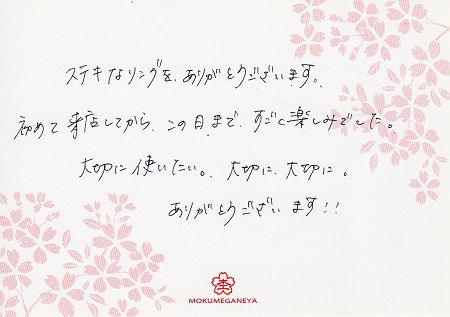 ステキなリングを、ありがとうございます。
初めて来店してから、この日まで、すごく楽しみでした。
大切に使いたい。大切に、大切に。
ありがとうございます!!
杢
MOKUMEGANEYA